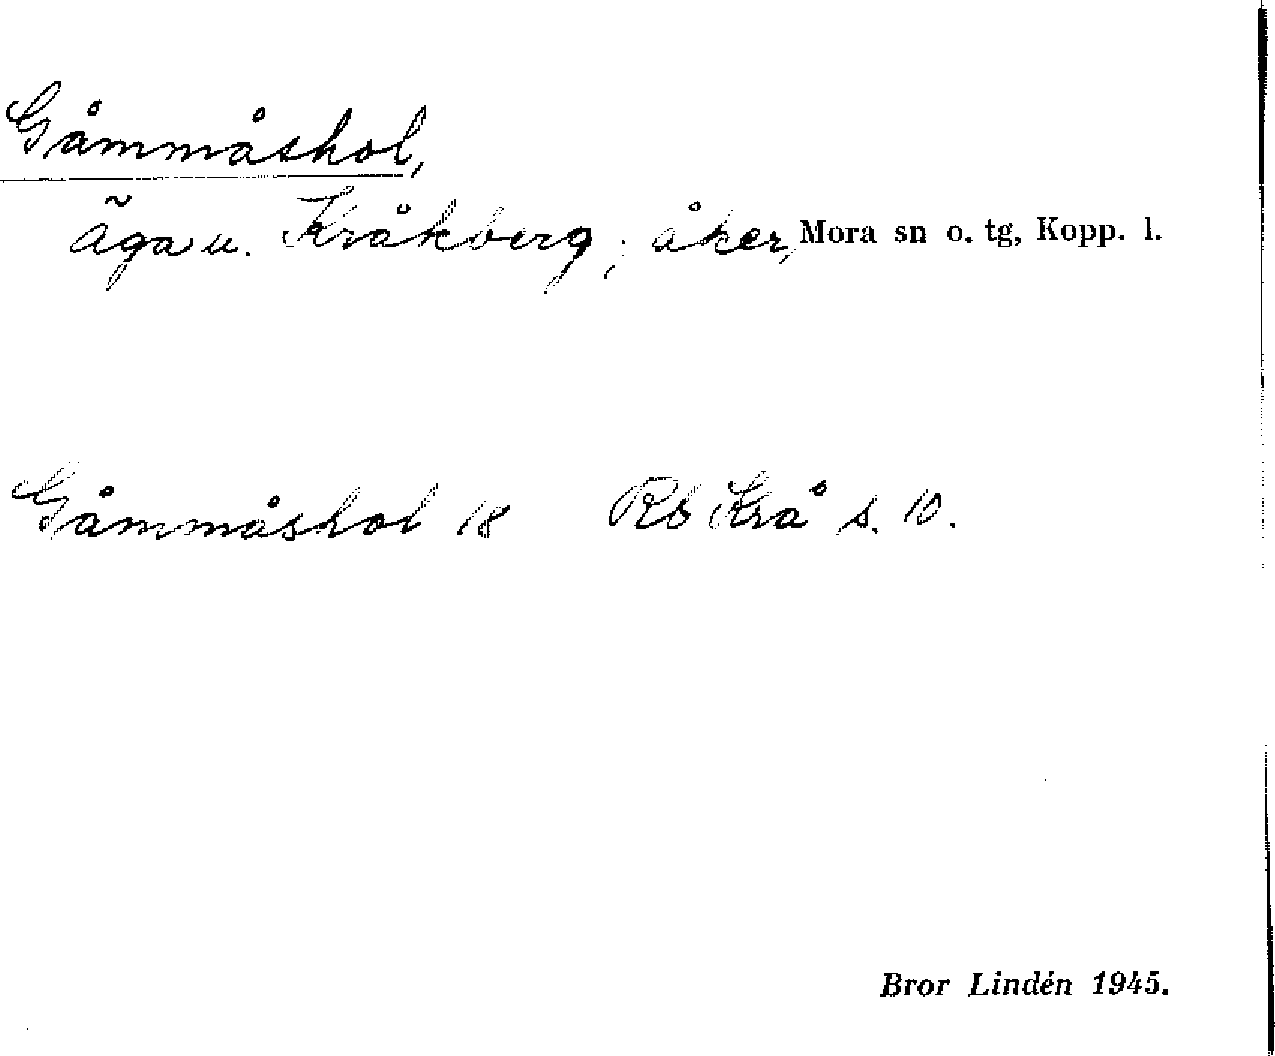 Gåmmåshol,
äga u. Kråkberg; åker, Mora sn o. tg, Kopp. l.
Gåmmåshol 18 Rb Krå s. 10.
Bror Lindén 1945.